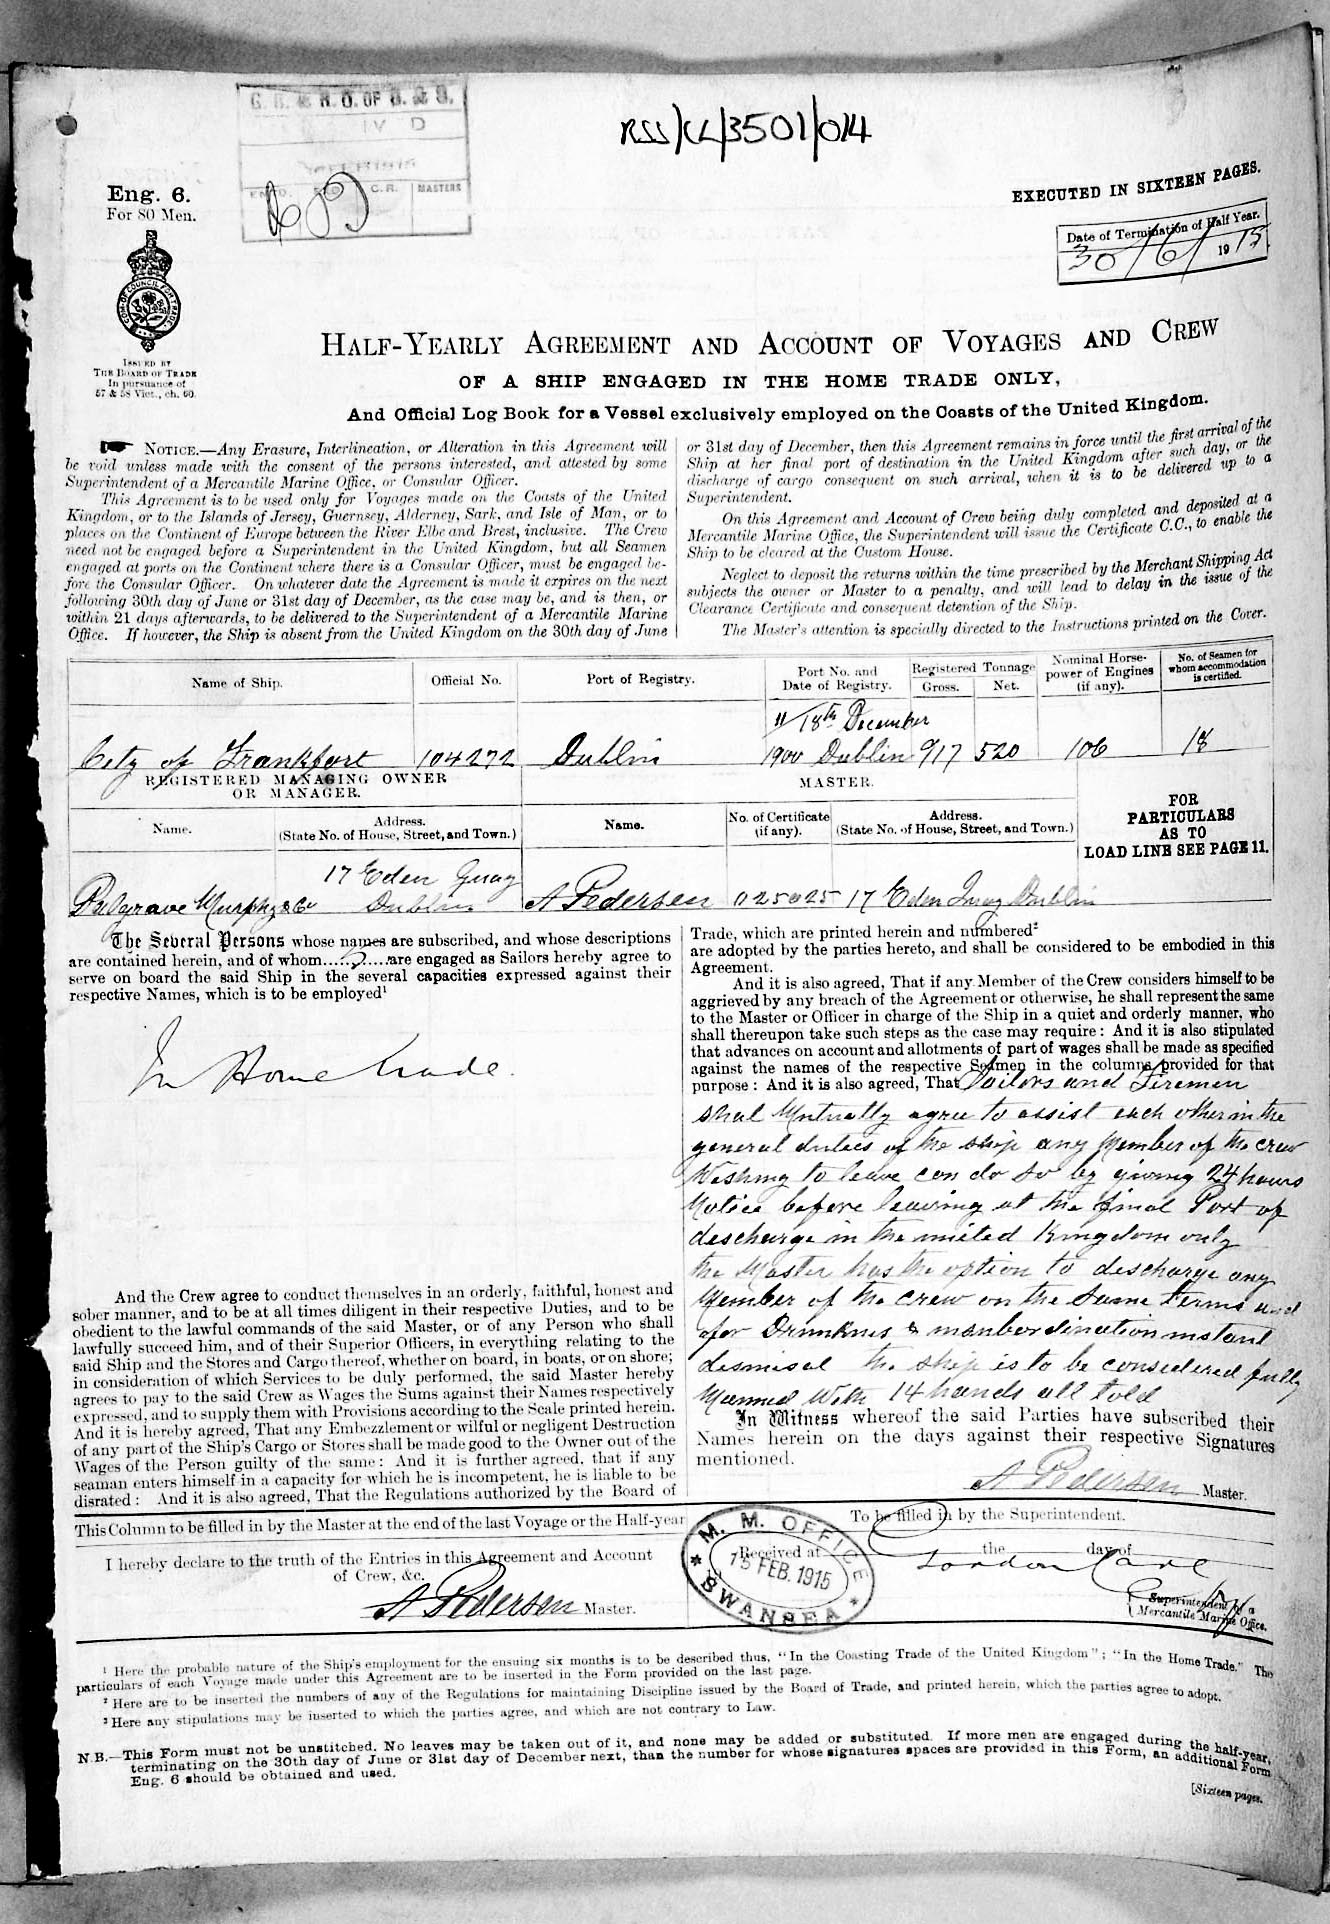 G. R. & R. O. OF S. & S.
IV D
C.R. MASTERS
RSS/CL/3501/014
Eng. 6.
For 80 Men.
EXECUTED IN SIXTEEN PAGES.
Date of Termination of Half Year.
30/6/1915
COM. OF COUNCIL FOR TRADE
ISSUED BY
THE BOARD OF TRADE
In pursuance of
57 & 58 Vict., ch. 60.
HALF-YEARLY AGREEMENT AND ACCOUNT OF VOYAGES AND CREW
OF A SHIP ENGAGED IN THE HOME TRADE ONLY,
And Official Log Book for a Vessel exclusively employed on the Coasts of the United Kingdom.
NOTICE.—Any Erasure, Interlineation, or Alteration in this Agreement will
be void unless made with the consent of the persons interested, and attested by some
Superintendent of a Mercantile Marine Office, or Consular Officer.
This Agreement is to be used only for Voyages made on the Coasts of the United
Kingdom, or to the Islands of Jersey, Guernsey, Alderney, Sark, and Isle of Man, or to
places on the Continent of Europe between the River Elbe and Brest, inclusive. The Crew
need not be engaged before a Superintendent in the United Kingdom, but all Seamen
engaged at ports on the Continent where there is a Consular Officer, must be engaged be-
fore the Consular Officer. On whatever date the Agreement is made it expires on the next
following 30th day of June or 31st day of December, as the case may be, and is then, or
within 21 days afterwards, to be delivered to the Superintendent of a Mercantile Marine
Office. If however, the Ship is absent from the United Kingdom on the 30th day of June
or 31st day of December, then this Agreement remains in force until the first arrival of the
Ship at her final port of destination in the United Kingdom after such day, or the
discharge of cargo consequent on such arrival, when it is to be delivered up to a
Superintendent.
On this Agreement and Account of Crew being duly completed and deposited at a
Mercantile Marine Office, the Superintendent will issue the Certificate C.C., to enable the
Ship to be cleared at the Custom House.
Neglect to deposit the returns within the time prescribed by the Merchant Shipping Act
subjects the owner or Master to a penalty, and will lead to delay in the issue of the
Clearance Certificate and consequent detention of the Ship.
The Master's attention is specially directed to the Instructions printed on the Cover.
Name of Ship. Official No. Port of Registry. Port No. and Date of Registry. Registered Tonnage Gross. Net. Nominal Horse-power of Engines (if any). No. of Seamen for whom accommodation is certified.
11/18th December
City of Frankfort 104272 Dublin 1900 Dublin 917 520 106 18
REGISTERED MANAGING OWNER
OR MANAGER.
MASTER.
Name. Address. (State No. of House, Street, and Town.) Name. No. of Certificate (if any). Address. (State No. of House, Street, and Town.)
FOR
PARTICULARS
AS TO
LOAD LINE SEE PAGE 11.
17 Eden Quay
Palgrave Murphy & Co Dublin A Pedersen 025025 17 Eden Quay Dublin
The Several Persons whose names are subscribed, and whose descriptions
are contained herein, and of whom are engaged as Sailors hereby agree to
serve on board the said Ship in the several capacities expressed against their
respective Names, which is to be employed¹
In Home Trade.
And the Crew agree to conduct themselves in an orderly, faithful, honest and
sober manner, and to be at all times diligent in their respective Duties, and to be
obedient to the lawful commands of the said Master, or of any Person who shall
lawfully succeed him, and of their Superior Officers, in everything relating to the
said Ship and the Stores and Cargo thereof, whether on board, in boats, or on shore;
in consideration of which Services to be duly performed, the said Master hereby
agrees to pay to the said Crew as Wages the Sums against their Names respectively
expressed, and to supply them with Provisions according to the Scale printed herein.
And it is hereby agreed, That any Embezzlement or wilful or negligent Destruction
of any part of the Ship's Cargo or Stores shall be made good to the Owner out of the
Wages of the Person guilty of the same: And it is further agreed, that if any
seaman enters himself in a capacity for which he is incompetent, he is liable to be
disrated: And it is also agreed, That the Regulations authorized by the Board of
Trade, which are printed herein and numbered²
are adopted by the parties hereto, and shall be considered to be embodied in this
Agreement.
And it is also agreed, That if any Member of the Crew considers himself to be
aggrieved by any breach of the Agreement or otherwise, he shall represent the same
to the Master or Officer in charge of the Ship in a quiet and orderly manner, who
shall thereupon take such steps as the case may require: And it is also stipulated
that advances on account and allotments of part of wages shall be made as specified
against the names of the respective Seamen in the columns provided for that
purpose: And it is also agreed, That Sailors and Firemen
shal Mutually agree to assist each other in the
general duties of the ship any Member of the crew
Wishing to leave can do so by giving 24 hours
Notice before leaving at the final Port of
discharge in the united Kingdom only
the Master has the option to discharge any
Member of the crew on the same terms and
for Drunknes & insubordination instant
dismisal the ship is to be considered fully
Manned With 14 hands all told
In Witness whereof the said Parties have subscribed their
Names herein on the days against their respective Signatures
mentioned.
A Pedersen Master.
This Column to be filled in by the Master at the end of the last Voyage or the Half-year
I hereby declare to the truth of the Entries in this Agreement and Account
of Crew, &c.
A Pedersen Master.
To be filled in by the Superintendent.
Received at the day of
M. M. OFFICE
15 FEB. 1915
SWANSEA
Superintendent of a
Mercantile Marine Office.
¹ Here the probable nature of the Ship's employment for the ensuing six months is to be described thus, "In the Coasting Trade of the United Kingdom"; "In the Home Trade." The
particulars of each Voyage made under this Agreement are to be inserted in the Form provided on the last page.
² Here are to be inserted the numbers of any of the Regulations for maintaining Discipline issued by the Board of Trade, and printed herein, which the parties agree to adopt.
³ Here any stipulations may be inserted to which the parties agree, and which are not contrary to Law.
N.B.—This Form must not be unstitched. No leaves may be taken out of it, and none may be added or substituted. If more men are engaged during the half-year,
terminating on the 30th day of June or 31st day of December next, than the number for whose signatures spaces are provided in this Form, an additional Form
Eng. 6 should be obtained and used.
[Sixteen pages.